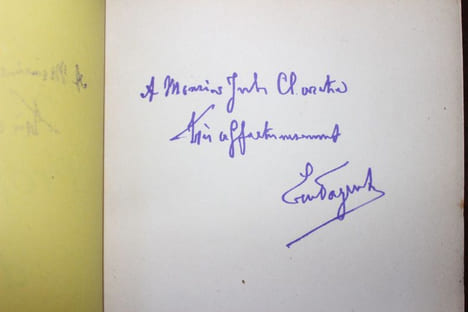 A Monsieur Jules Claretie
Très affectueusement